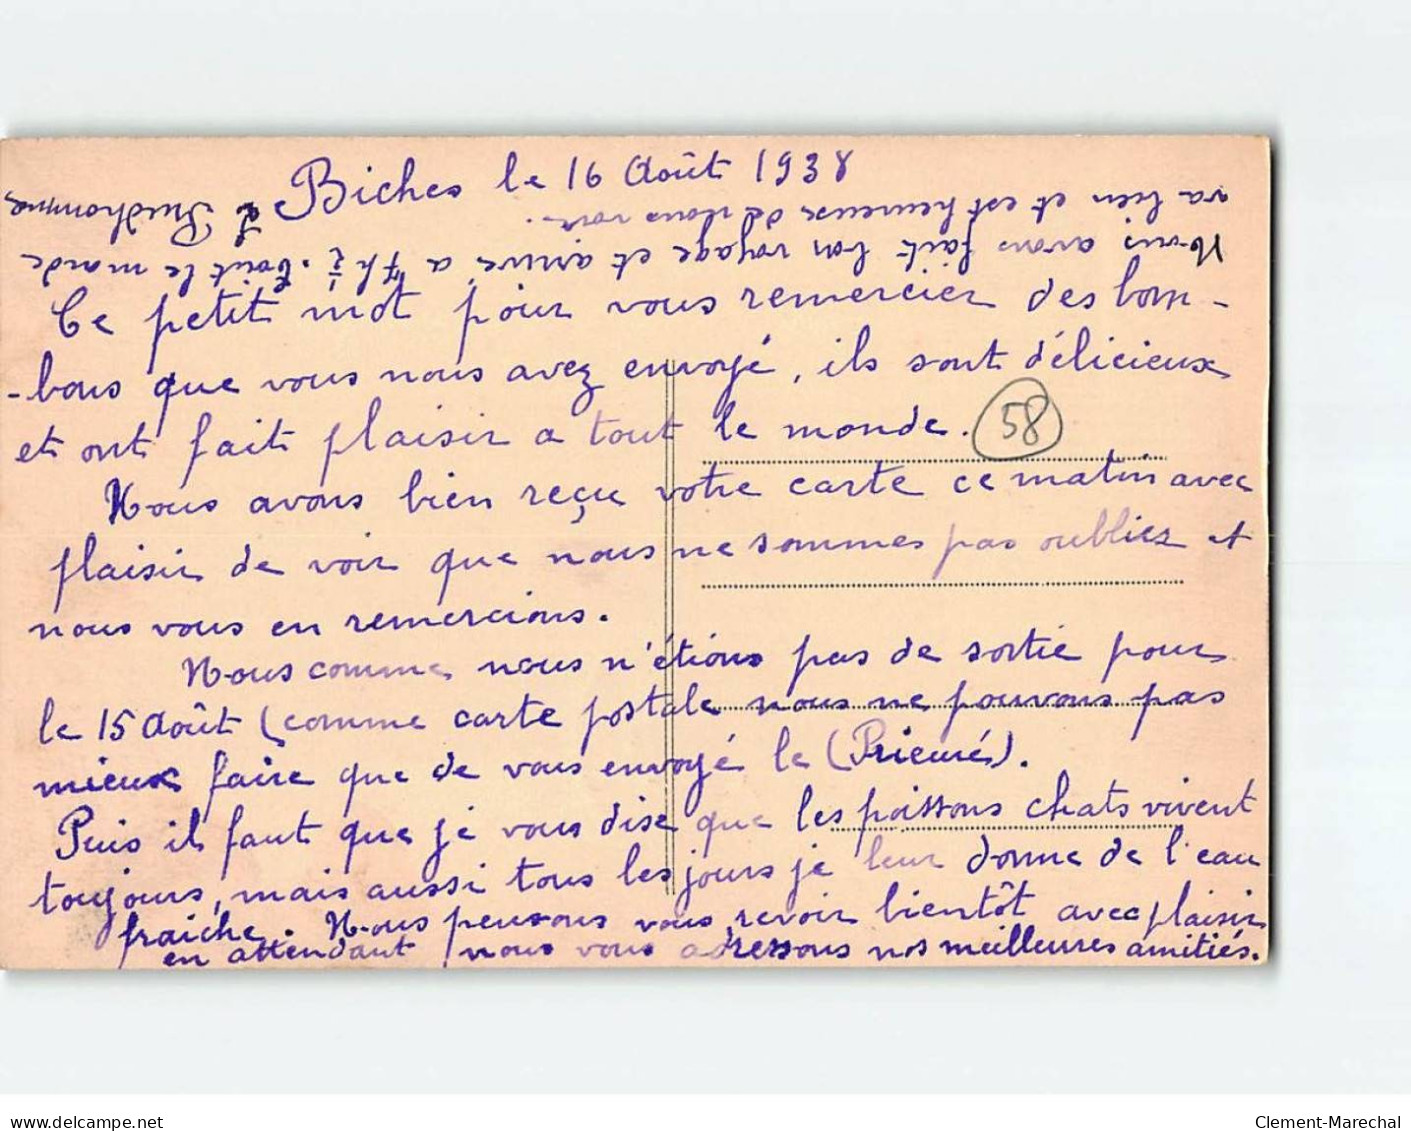 Biches le 16 Août 1938
Ce petit mot pour vous remercier des bom-
-bons que vous nous avez envoyé, ils sont délicieux
et ont fait plaisir a tout le monde.
58
Nous avons bien reçu votre carte ce matin avec
plaisir de voir que nous ne sommes pas oubliez et
nous vous en remercions.
Nous comme nous n'étions pas de sortie pour
le 15 Août (comme carte postale nous ne pouvons pas
mieux faire que de vous envoyé le (Prieuré).
Puis il faut que je vous dise que les poissons chats vivent
toujours, mais aussi tous les jours je leur donne de l'eau
fraiche. Nous pensons vous revoir bientôt avec plaisir
en attendant nous vous adressons nos meilleures amitiés.
Nous avons fait bon voyage et arrivé a 7h ½. Tout le monde
va bien et est heureux de nous voir.
L Prudhomme
www.delcampe.net
Clement-Marechal